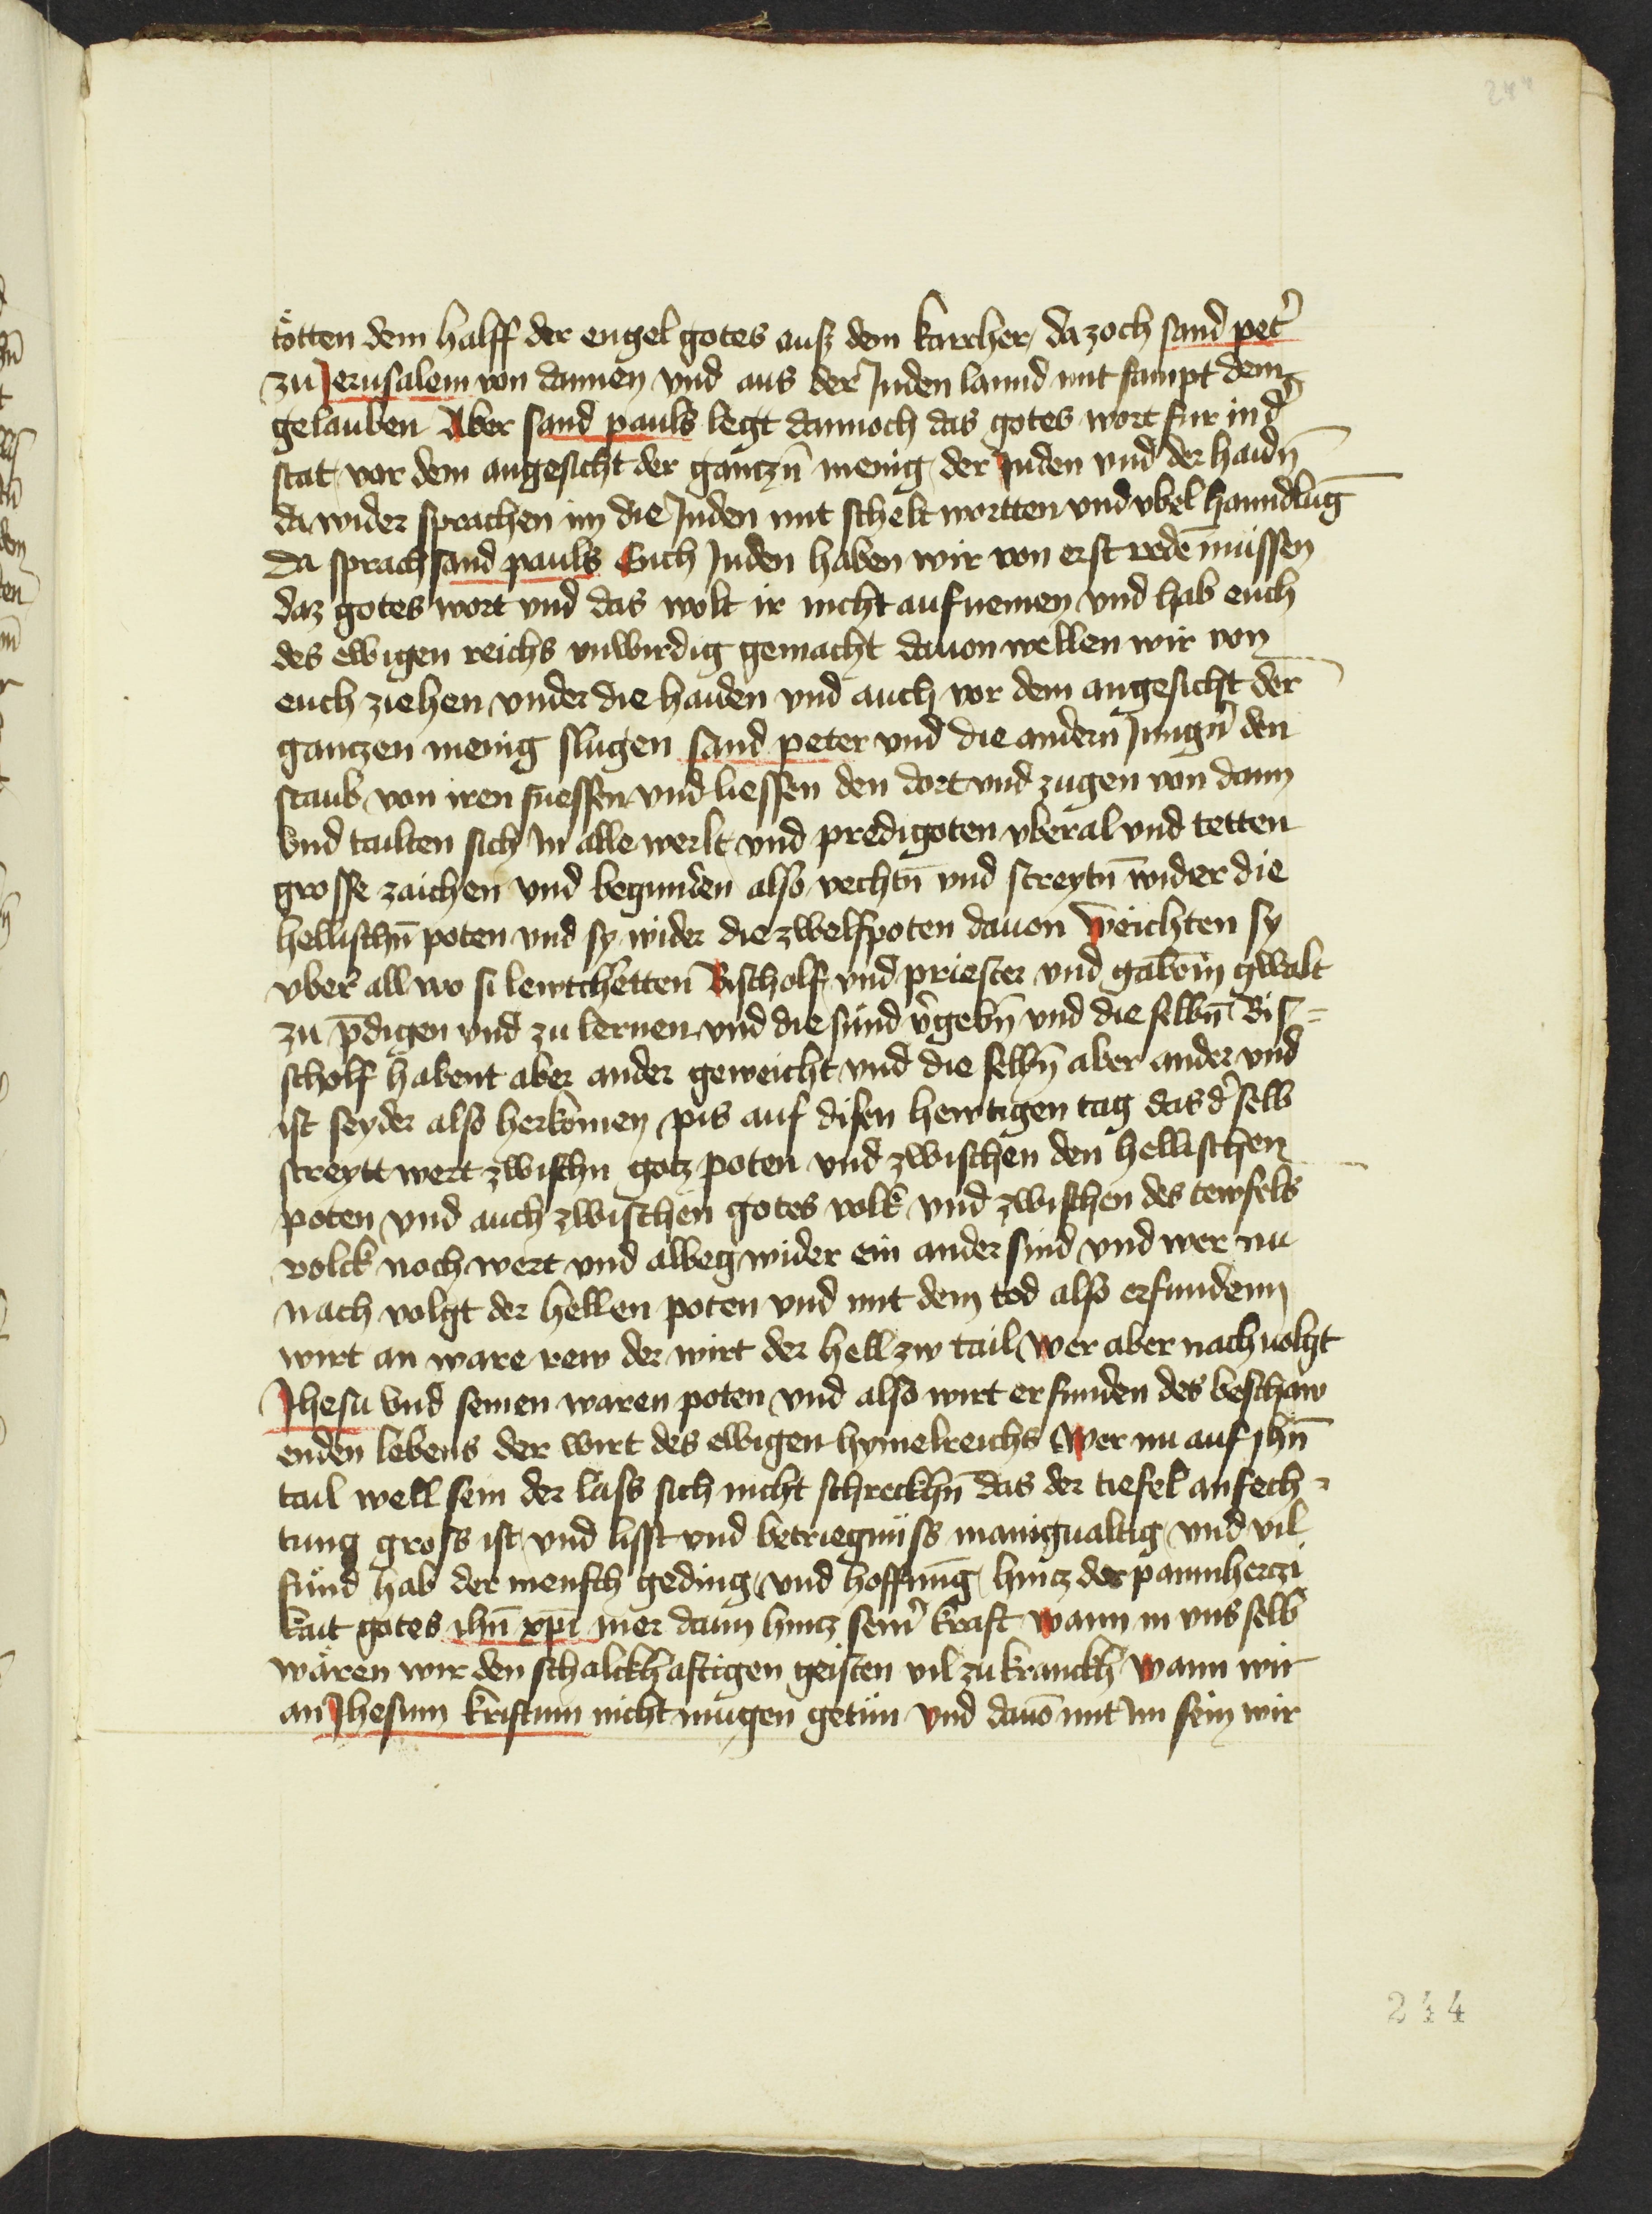 244
tötten dem halff der engel gotes ausz dem karcher / da zoch sand pet͛
zu Jerusalem von dannen vnd aus der Juden lannd mit sampt dem
gelauben Aber sand pauls legt dannoch das gotes wort fur in d͛
stat vor dem angesicht der gantzn̄ menig der Juden vnd der haidn̄
da wider sprachen im die Juden mit schelt wortten vnd vbel hanndlūg
da sprach sand pauls Euch Juden haben wir von erst redē müssen
daz gotes wort vnd das wolt ir nicht aufnemen vnd hab euch
des ewigen reichs vnwirdig gemacht dauon wellen wir von
euch ziehen vnder die haiden vnd auch vor dem angesicht der
gantzen menig slugen sand peter vnd die andern Jungn̄ den
staub von iren fuessen vnd liessen den dort vnd zugen von dann
Vnd tailten sich in alle werlt vnd predigoten vberal vnd tetten
grosse zaichen vnd begunden also vechtn̄ vnd streytn̄ wider die
hellischn̄ poten vnd sy wider die zwelfpoten dauon weichten sy
vber all wo si lewt hetten Bischolf vnd priester vnd gabō in gwalt
zu p̄digen vnd zu lernen vnd die sünd v͛gebn̄ vnd die selbn̄ Bis=
scholf habent aber ander geweicht vnd die selbn̄ aber ander vnd
ist seyder also herkomen pis auf disen hewtigen tag das d͛ selb
streytt wert zwischn gotz poten vnd zwischen den hellischen
poten vnd auch zwischen gotes volk vnd zwischen des tewfels
volck noch wert vnd albeg wider ein ander sind vnd wer nu
nach volgt der hellen poten vnd mit dem tod also erfundenn
wirt an ware rew der wirt der hell zw tail Wer aber nach uolgt
Jhesu vnd seinen waren poten vnd also wirt erfunden des beschaw
enden lebens der wirt des ewigen hymelreichs Wer nu auf jhū
tail well sein der lass sich nicht schreckhn̄ das der tiefel anfech=
tung gross ist vnd lisst vnd betriegnüss manigualtig vnd vil
sünd hab der mensch geding vnd hoffnūg hincz der parmherczi
kait gotes jhū xp̄i mer dann hincz sein͛ kraft Wann in vns selb
wären wir den schalckhaftigen geisten vil zu kranckh Wann wir
an Jhesum kristum nicht mugen getün vnd dauō mit im sein wir
244